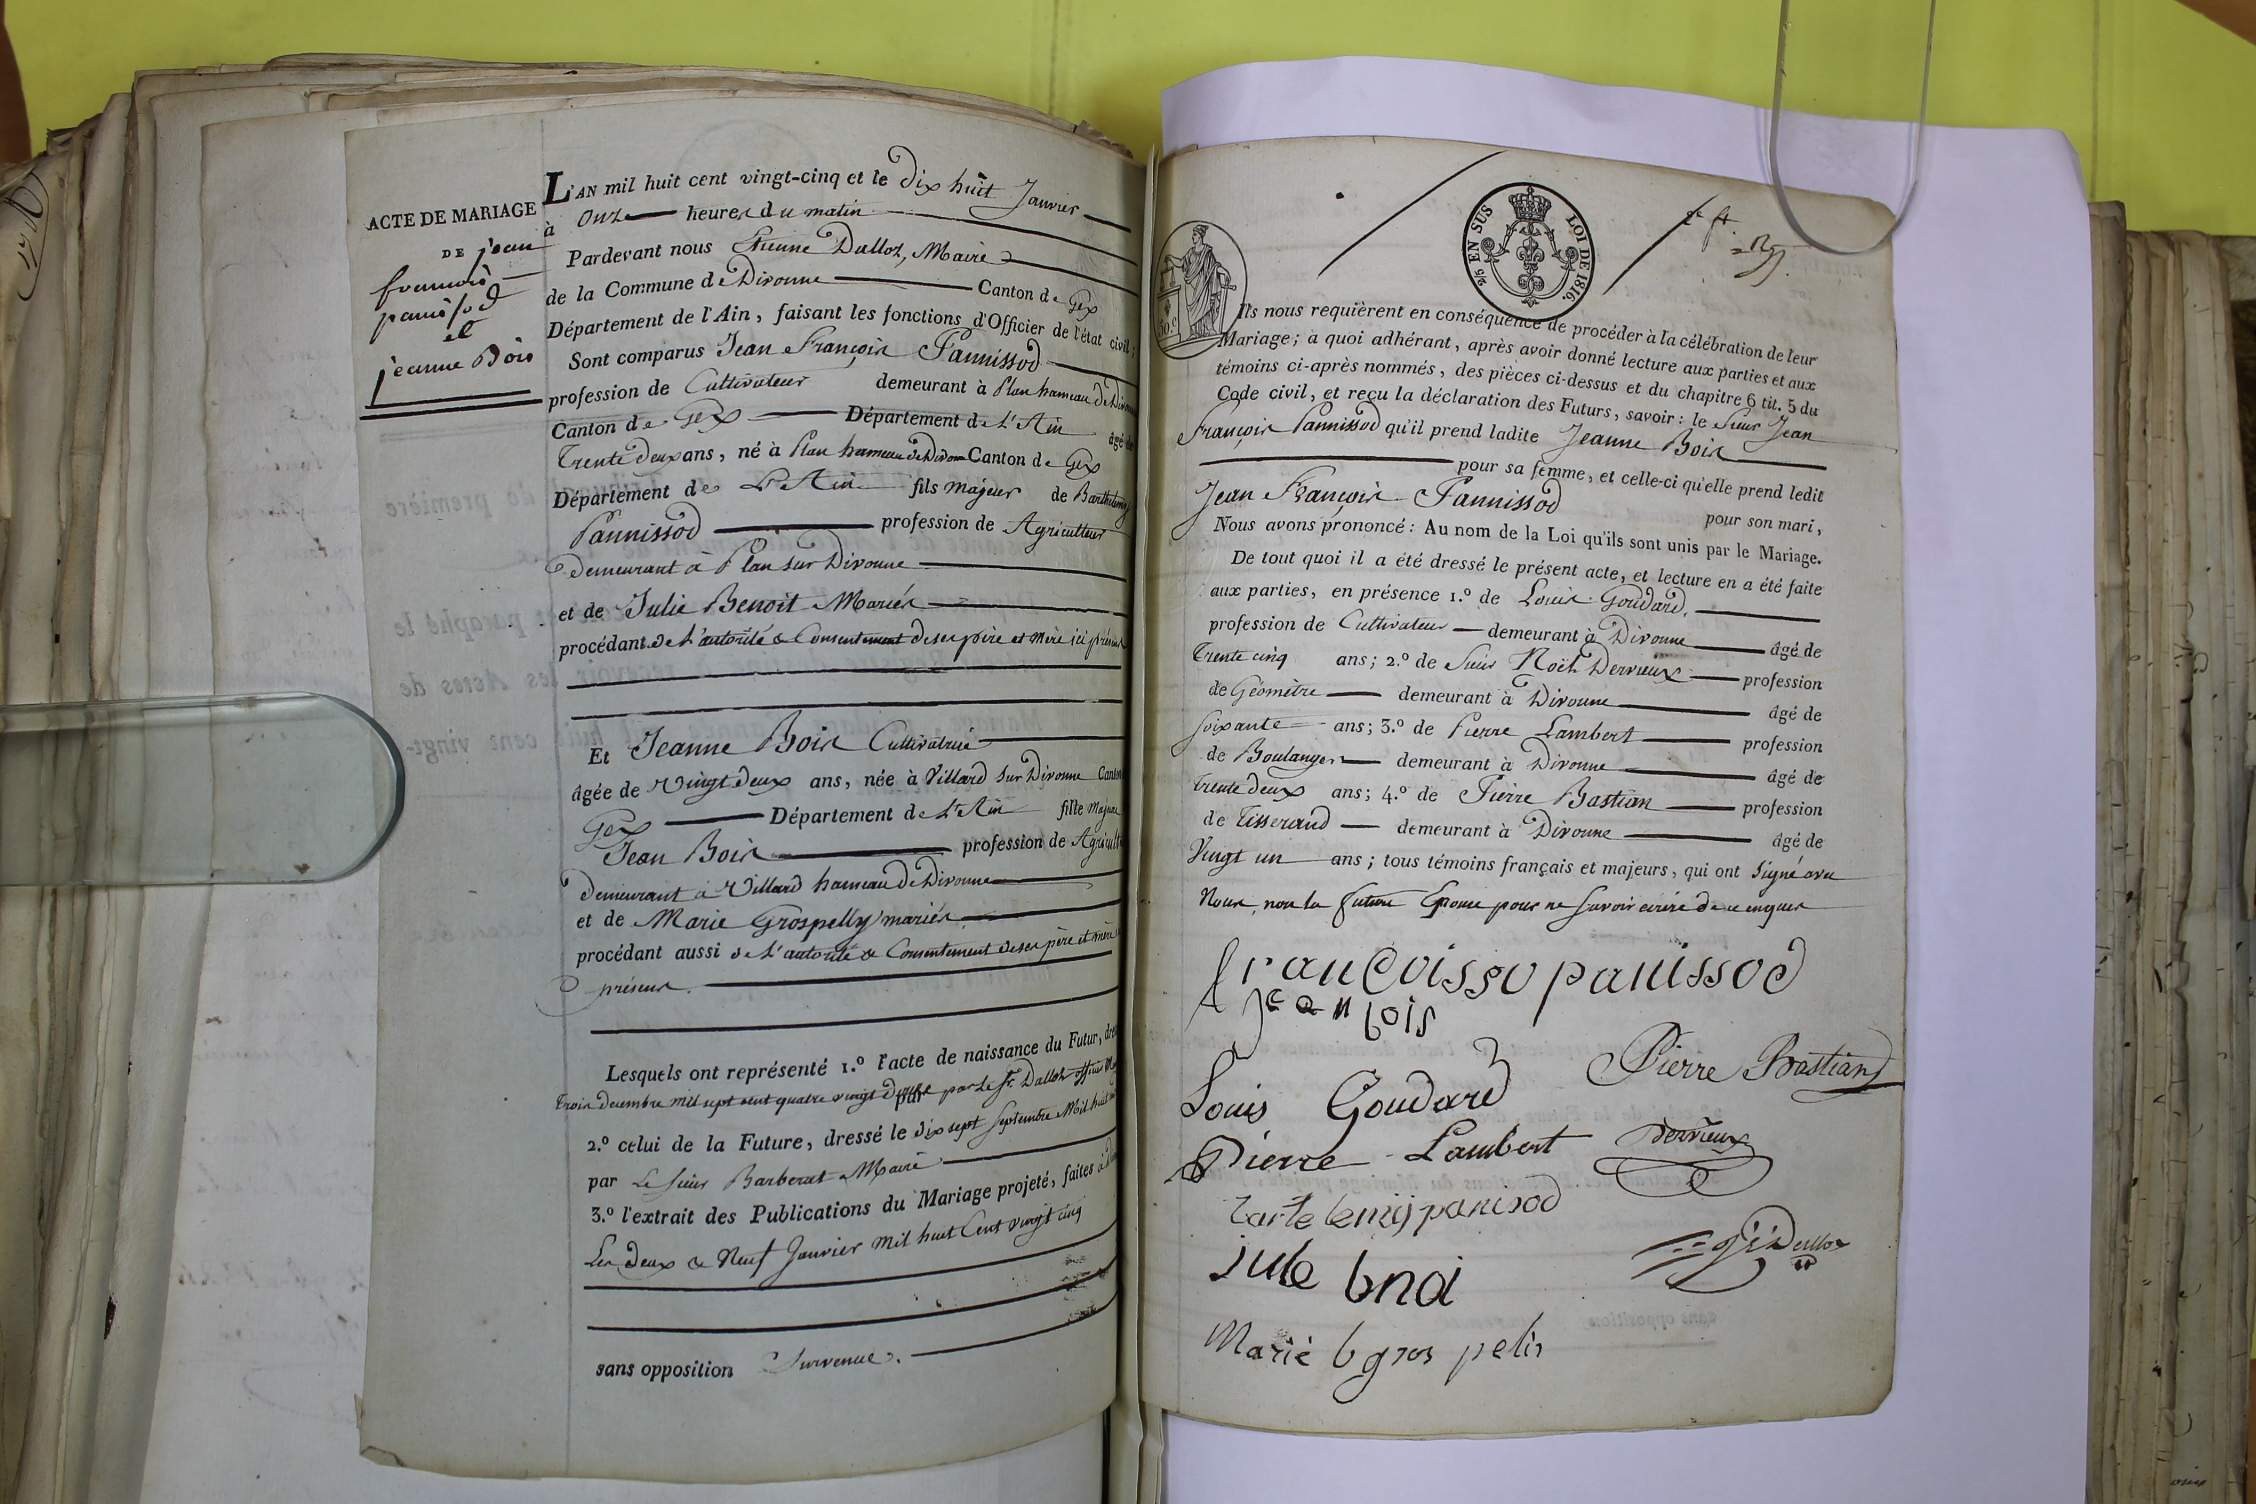 ACTE DE MARIAGE
DE jean
françois
panissod
et
jeanne Bois
L'AN mil huit cent vingt-cinq et le Dix huit Janvier
à onze heures du matin
Pardevant nous Etienne Dalloz, Maire
de la Commune de Divonne Canton de Gex
Département de l'Ain, faisant les fonctions d'Officier de l'état civil;
Sont comparus Jean François Pannissod
profession de Cultivateur demeurant à Plan hameau de Divonne
Canton de Gex Département de L'Ain âgé de
Trente deux ans, né à Plan hameau de Divonne Canton de Gex
Département de L'Ain fils majeur de Barthelemy
Pannissod profession de Agriculteur
demeurant à Plan sur Divonne
et de Julie Benoit Mariés
procédant de L'autorité & Consentement de ses père et mère ici présens
Et Jeanne Bois Cultivatrice
âgée de Vingt deux ans, née à Villard sur Divonne Canton
Gex Département de L'Ain fille majeure
Jean Bois profession de Agricult
demeurant à Villard hameau de Divonne
et de Marie Grospelly mariés
procédant aussi de L'autorité & Consentement de ses père et mère
présens.
Lesquels ont représenté 1.º l'acte de naissance du Futur, dre
Trois decembre mil sept cent quatre vingt douze par le Sr. Dalloz officier
par
2.º celui de la Future, dressé le dix sept Septembre Mil huit
par Le Sieur Barberat Maire
3.º l'extrait des Publications du Mariage projeté, faites à
Les deux & Neuf Janvier mil huit Cent vingt cinq
sans opposition Survenue.
2/5 EN SUS LOI DE 1816.
Ils nous requièrent en conséquence de procéder à la célébration de leur
Mariage; à quoi adhérant, après avoir donné lecture aux parties et aux
témoins ci-après nommés, des pièces ci-dessus et du chapitre 6 tit. 5 du
Code civil, et reçu la déclaration des Futurs, savoir: le Sieur Jean
François Pannissod qu'il prend ladite Jeanne Bois
pour sa femme, et celle-ci qu'elle prend ledit
Jean François Pannissod pour son mari,
Nous avons prononcé: Au nom de la Loi qu'ils sont unis par le Mariage.
De tout quoi il a été dressé le présent acte, et lecture en a été faite
aux parties, en présence 1.º de Louis Goudard,
profession de Cultivateur demeurant à Divonne âgé de
Trente cinq ans; 2.º de Sieur Noël Derrieux profession
de Géomètre demeurant à Divonne âgé de
soixante ans; 3.º de Pierre Lambert profession
de Boulanger demeurant à Divonne âgé de
Trente deux ans; 4.º de Pierre Bastian profession
de Tisserand demeurant à Divonne âgé de
Vingt un ans; tous témoins français et majeurs, qui ont signé avec
Nous, non la future Epouse pour ne savoir écrire de ce enquis
françois panissod
jean bois
Pierre Bastian
Louis Goudard
Pierre Lambert
Derrieux
bartelemij panisod
Dalloz
jule bnoi
Marie b gros pelis